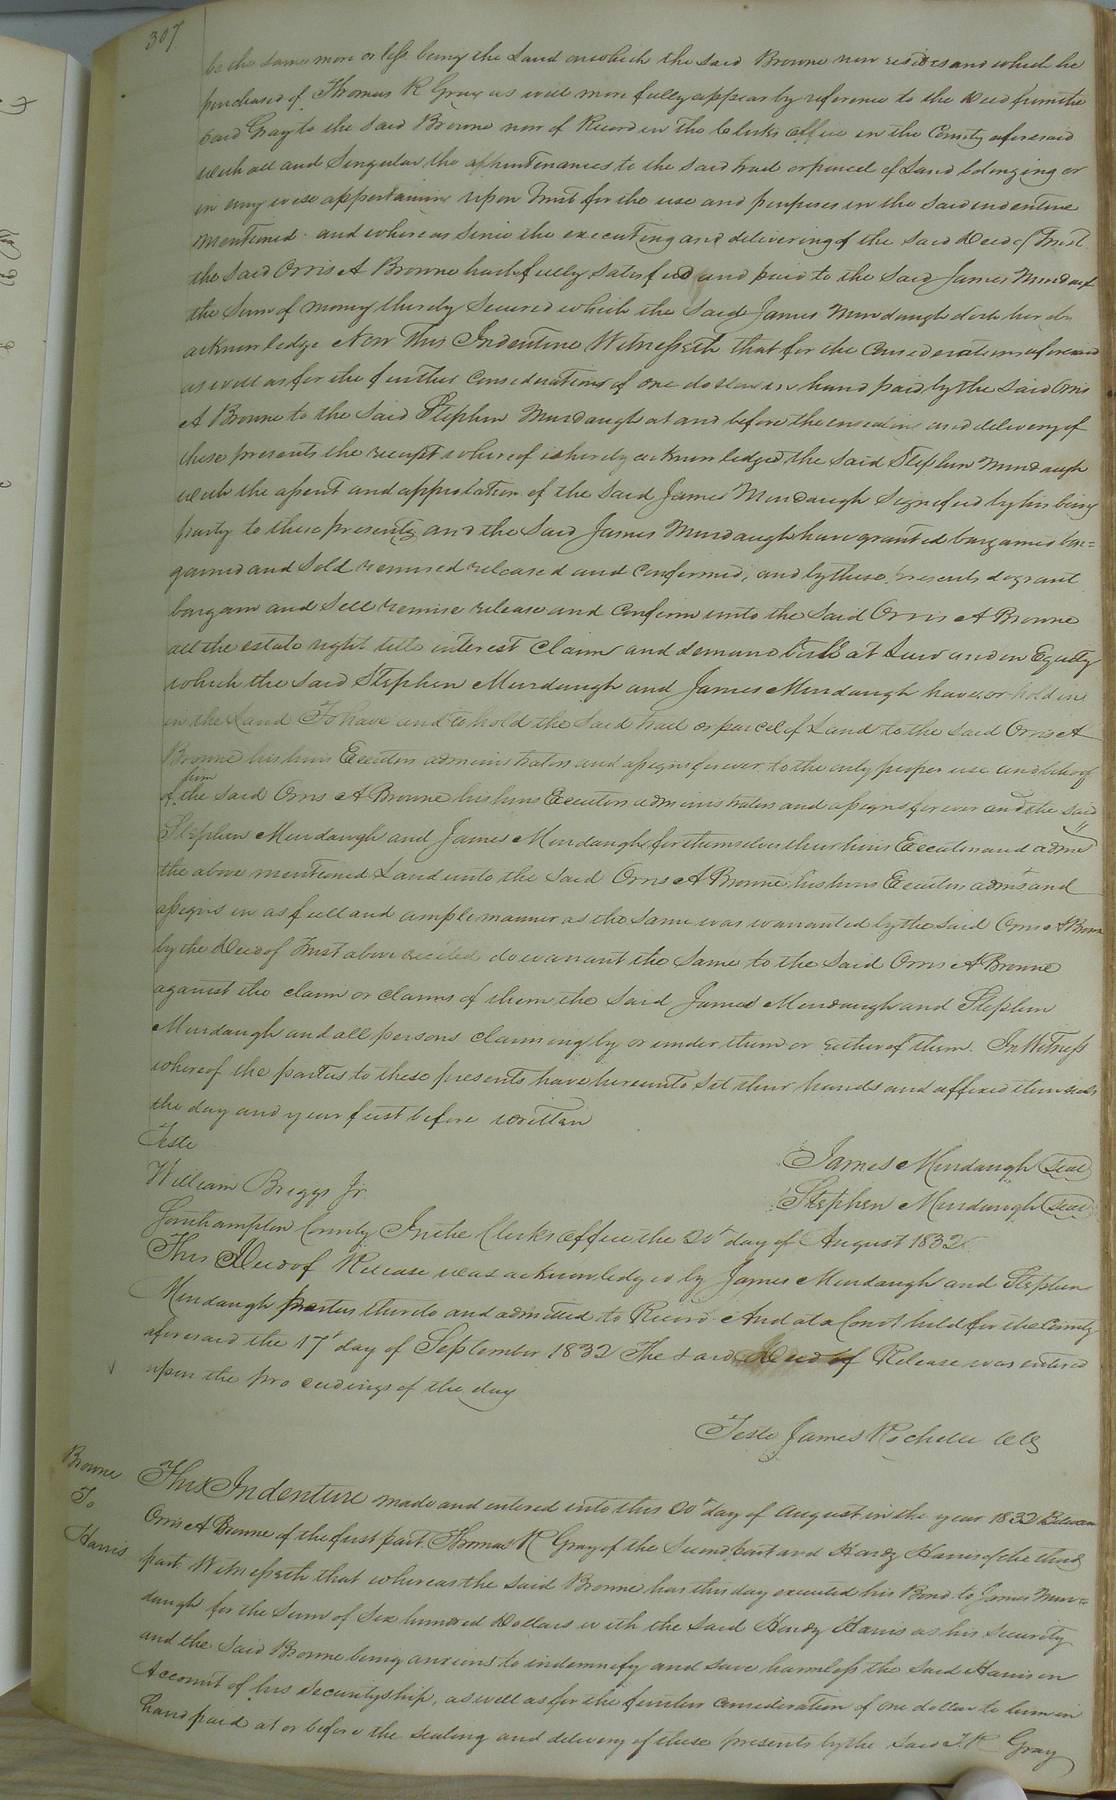 307
be the same more or less being the Land on which the said Browne now resides and which he
purchased of Thomas R Gray as will more fully appear by reference to the Deed from the
said Gray to the said Browne now of Record in the Clerks office in the County aforesaid
with all and Singular the appurtenances to the said tract or parcel of Land belonging or
in any wise appertaining upon Trust for the use and purposes in the said indenture
mentioned and whereas since the executing and delivering of the said Deed of Trust
the said Orris A Browne hath fully satisfied and paid to the said James Murdaugh
the Sum of money thereby Secured which the said James Murdaugh doth hereby
acknowledge Now This Indenture Witnesseth that for the Considerations aforesaid
as well as for the further Considerations of one dollar in hand paid by the said Orris
A Browne to the said Stephen Murdaugh at and before the ensealing and delivery of
these presents the receipt whereof is hereby acknowledged the said Stephen Murdaugh
with the assent and approbation of the said James Murdaugh signified by his being
party to these presents and the said James Murdaugh have granted bargained bar=
gained and Sold remised released and Confirmed, and by these presents do grant
bargain and Sell remise release and Confirm unto the said Orris A Browne
all the estate right title interest Claim and demand both at Law and in Equity
which the said Stephen Murdaugh and James Murdaugh have or hold in
in the Land To have and to hold the said tract or parcel of Land to the said Orris A
Browne his heirs Executors administrators and assigns forever to the only proper use and behoof
of him the said Orris A Browne his heirs Executors administrators and assigns forever and the said
Stephen Murdaugh and James Murdaugh for themselves their heirs Executors and admrs
the above mentioned Land unto the said Orris A Browne his heirs Executors admrs and
assigns in as full and ample manner as the same was warranted by the said Orris A Browne
by the Deed of Trust above recited do warrant the same to the said Orris A Browne
against the claim or claims of them the said James Murdaugh and Stephen
Murdaugh and all persons claiming by or under them or either of them. In Witness
whereof the parties to these presents have hereunto Set their hands and affixed their seals
the day and year first before written
Teste
James Murdaugh (seal)
William Briggs Jr
Stephen Murdaugh (seal)
Southampton County In the Clerks office the 20t day of August 1832
This Deed of Release was acknowledged by James Murdaugh and Stephen
Murdaugh parties thereto and admitted to Record And at a Court held for the County
aforesaid the 17t day of September 1832 The said Deed of Release was entered
upon the proceedings of the day
Teste James Rochelle Clk
Browne
To
Harris
This Indenture made and entered into this 20t day of August in the year 1832 Between
Orris A Browne of the first part Thomas R Gray of the Second part and Hardy Harris of the third
part Witnesseth that whereas the said Browne has this day executed his Bond to James Mur=
daugh for the Sum of Six hundred Dollars with the said Hardy Harris as his security
and the said Browne being anxious to indemnify and save harmless the said Harris on
Account of his Securityship, as well as for the further Consideration of one dollar to him in
hand paid at or before the sealing and delivery of these presents by the said T. R Gray